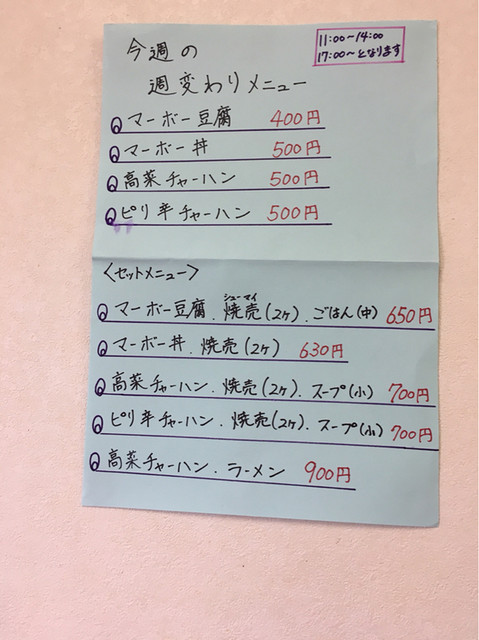 今週の
週変わりメニュー
11:00〜14:00
17:00〜となります
マーボー豆腐 400円
マーボー丼 500円
高菜チャーハン 500円
ピリ辛チャーハン 500円
〈セットメニュー〉
シューマイ
マーボー豆腐.焼売(2ヶ).ごはん(中) 650円
マーボー丼.焼売(2ヶ) 630円
高菜チャーハン.焼売(2ヶ).スープ(小) 700円
ピリ辛チャーハン.焼売(2ヶ).スープ(小) 700円
高菜チャーハン.ラーメン 900円